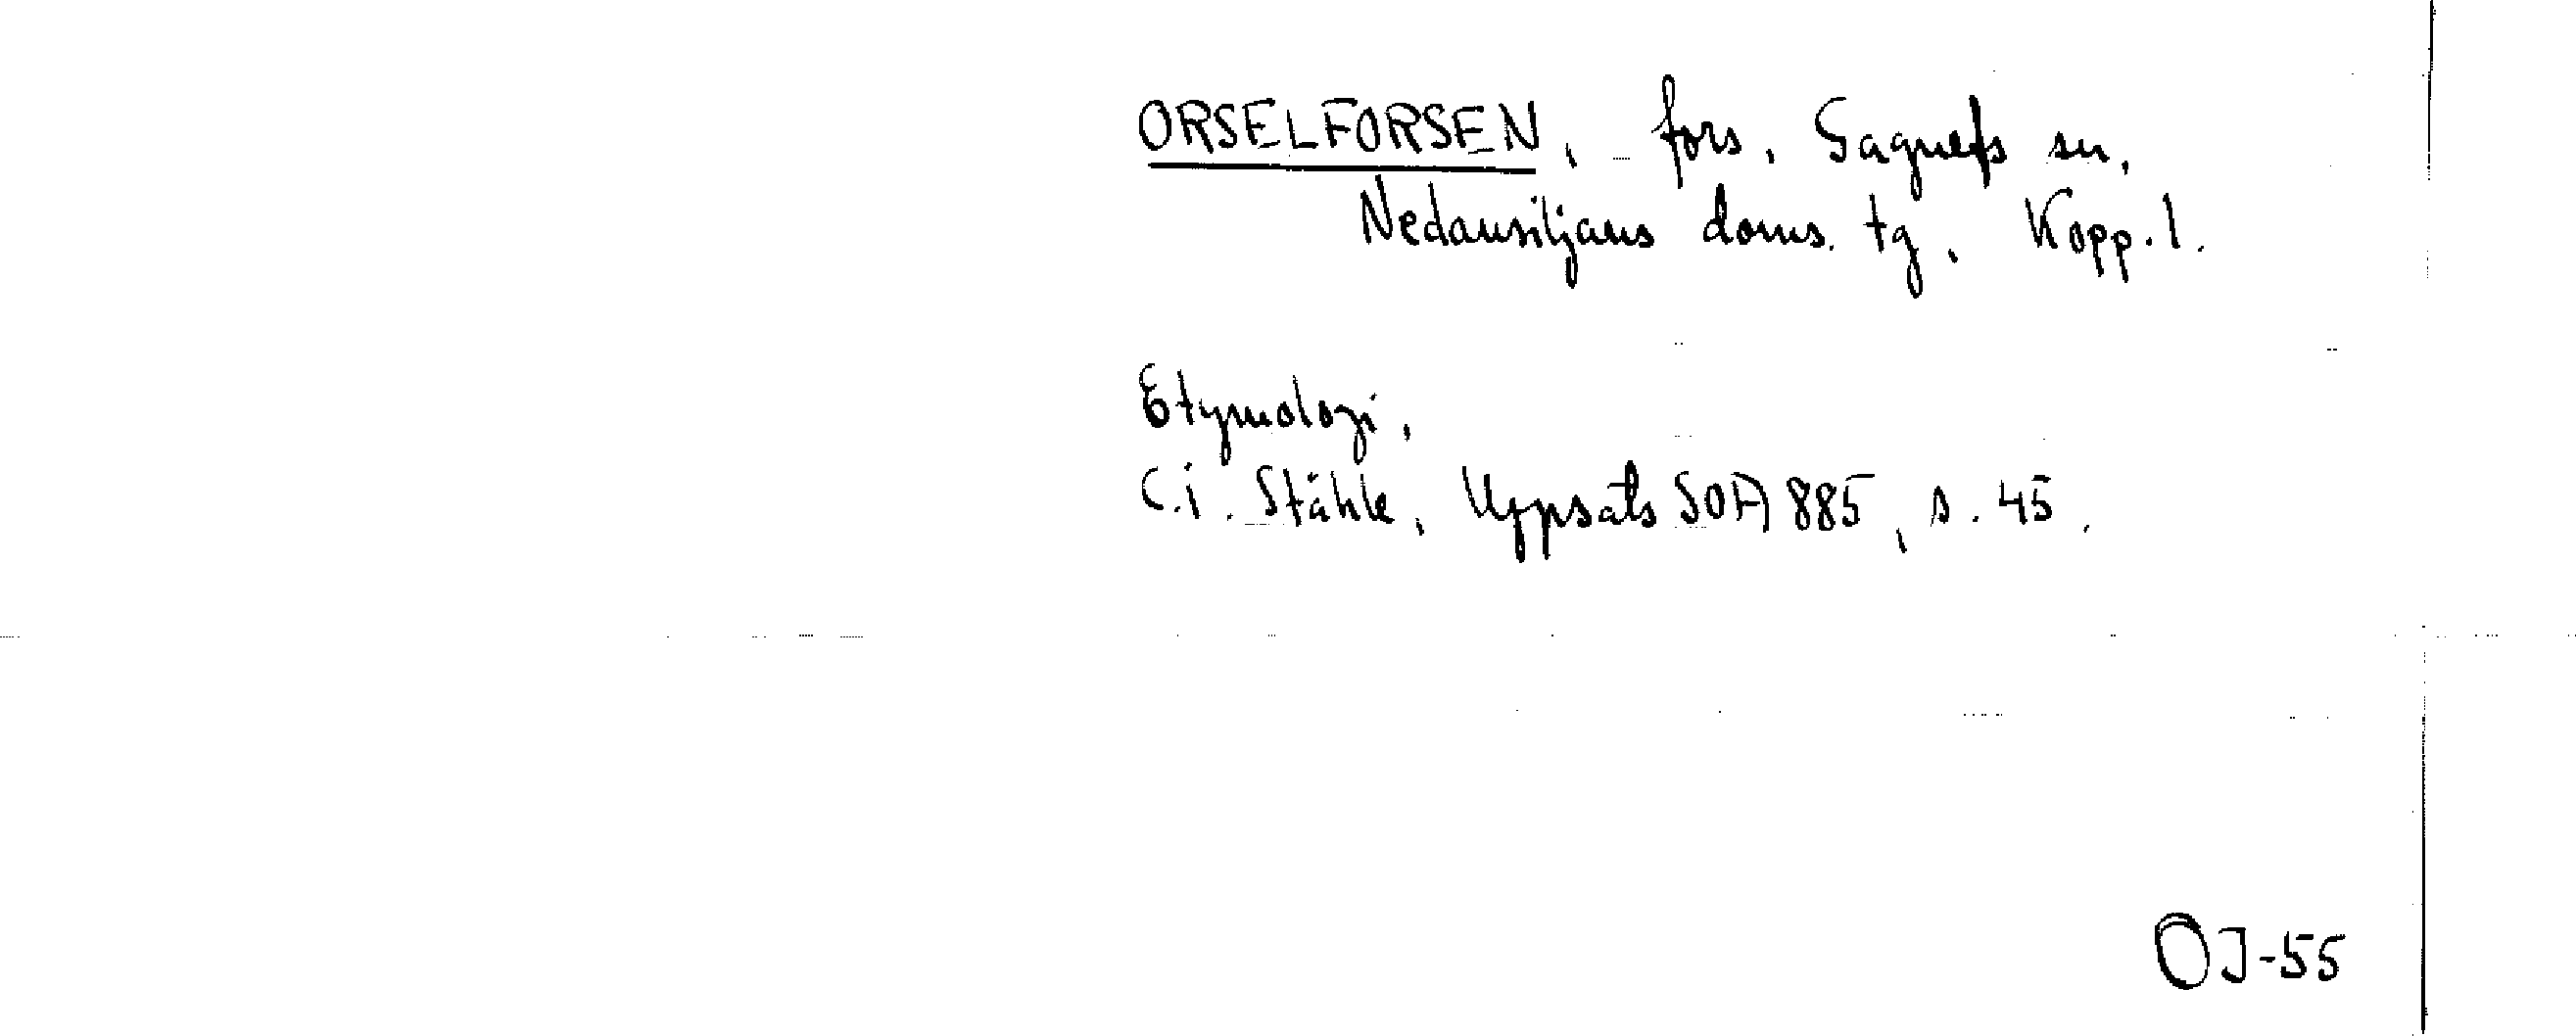 ORSELFORSEN, fors, Gagnefs sn,
Nedansiljans doms. tg, Kopp. l.
Etymologi,
C. I. Ståhle, Uppsats SOFA 885, s. 45.
OJ-55